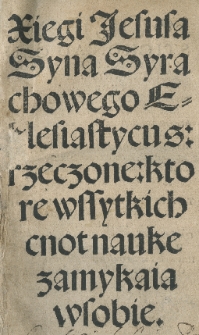 Xiegi Jesusa
Syna Syra
chowego E-
clesiastycus:
rzeczone: kto
re wssytkich
cnot nauke
zamykaia
w sobie.